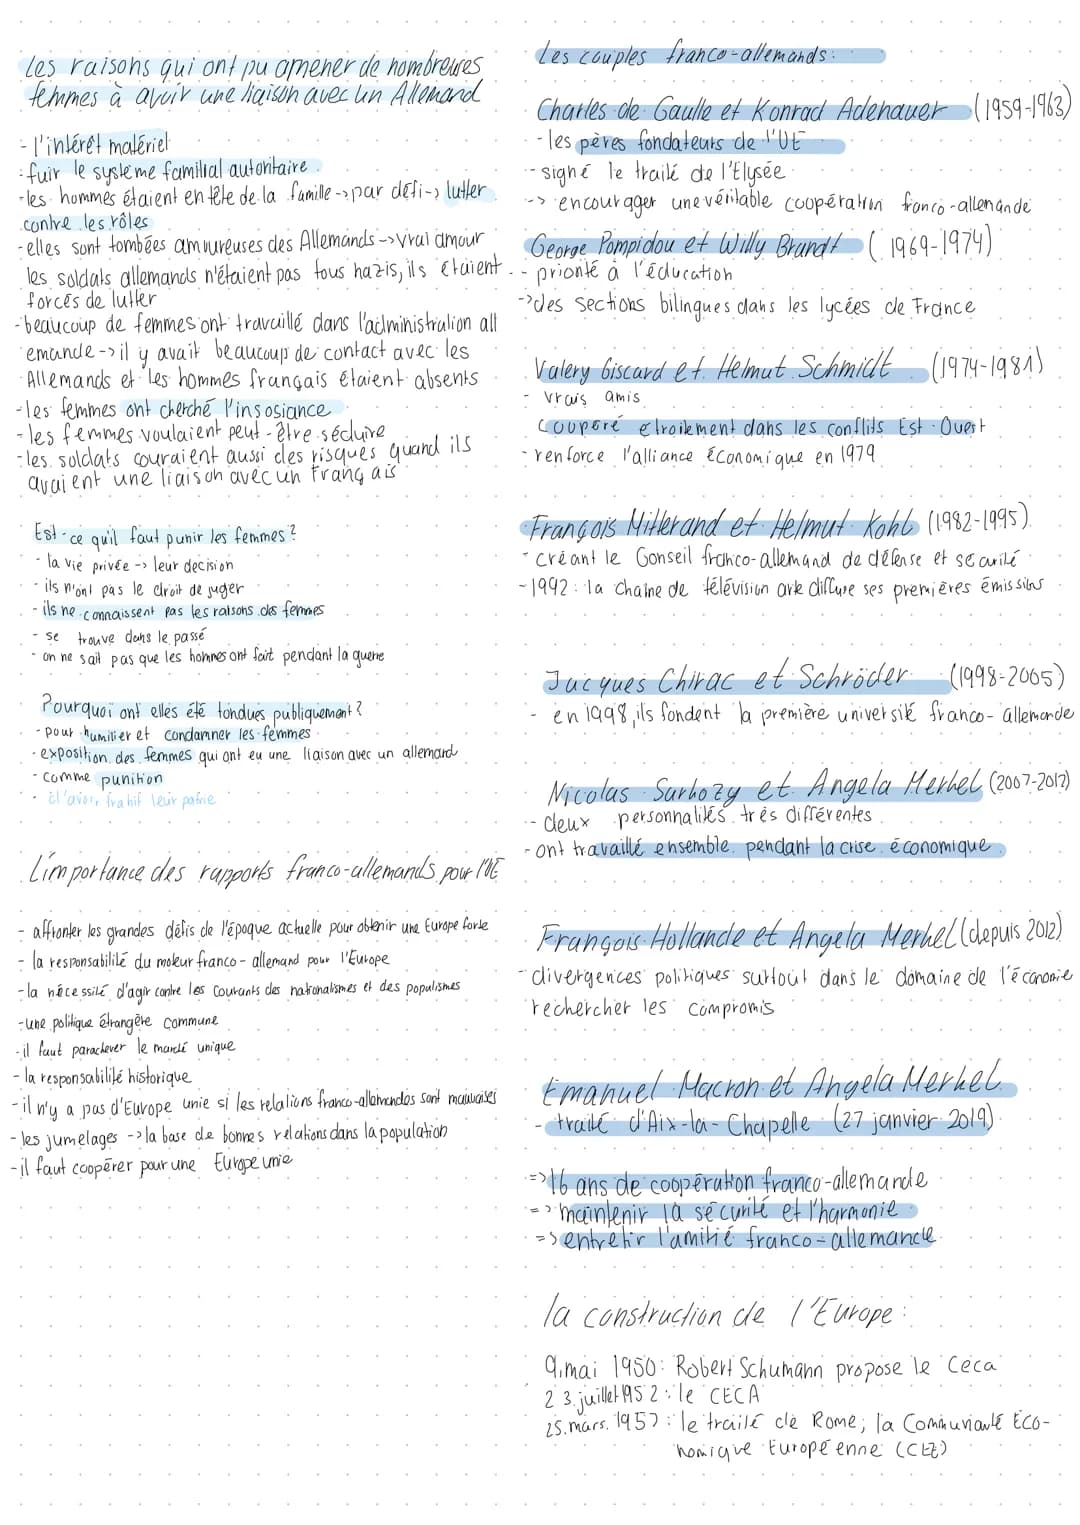 Les raisons qui ont pu amener de nombreuses
femmes à avoir une liaison avec un Allemand
- l'intérêt matériel
- fuir le système familial autoritaire
- les hommes étaient en tête de la famille -> par défi -> lutter
contre les rôles
- elles sont tombées amoureuses des Allemands -> vrai amour
les soldats allemands n'étaient pas tous nazis, ils étaient
forcés de lutter
- beaucoup de femmes ont travaillé dans l'administration all
emande -> il y avait beaucoup de contact avec les
Allemands et les hommes français étaient absents
- les femmes ont cherché l'insosiance
- les femmes voulaient peut-être séduire
- les soldats couraient aussi des risques quand ils
avaient une liaison avec un Français
Est-ce qu'il faut punir les femmes?
- la vie privée -> leur decision
- ils n'ont pas le droit de juger
- ils ne connaissent pas les raisons des femmes
- se trouve dans le passé
- on ne sait pas que les hommes ont fait pendant la guerre
Pourquoi ont elles été tondues publiquement?
- pour humilier et condamner les femmes
- exposition des femmes qui ont eu une liaison avec un allemand
- comme punition
- d'avoir trahit leur patrie
L'importance des rapports franco-allemands pour l'UE
- affronter les grandes défis de l'époque actuelle pour obtenir une Europe forte
- la responsabilité du moteur franco-allemand pour l'Europe
- la nécessité d'agir contre les courants des nationalismes et des populismes
- une politique étrangère commune
- il faut parachever le marché unique
- la responsabilité historique
- il n'y a pas d'Europe unie si les relations franco-allemandes sont mauvaises
- les jumelages -> la base de bonnes relations dans la population
- il faut coopérer pour une Europe unie
Les couples franco-allemands:
Charles de Gaulle et Konrad Adenauer (1959-1963)
- les pères fondateurs de l'UE
- signé le traité de l'Elysée
-> encouragger une véritable coopération franco-allemande
George Pompidou et Willy Brandt (1969-1974)
- priorité à l'éducation
-> des sections bilingues dans les lycées de France
Valery Giscard et Helmut Schmidt (1974-1981)
- vrais amis
coopéré etroitement dans les conflits Est-Ouest
- renforce l'alliance économique en 1979
François Mitterand et Helmut Kohl (1982-1995)
- créant le Conseil franco-allemand de défense et sécurité
- 1992: la chaîne de télévision arte diffuse ses premières émissions
Jacques Chirac et Schröder (1998-2005)
- en 1998, ils fondent la première université franco-allemande
Nicolas Sarkozy et Angela Merkel (2007-2012)
- deux personnalités très différentes
- ont travaillé ensemble pendant la crise économique
François Hollande et Angela Merkel (depuis 2012)
- divergences politiques surtout dans le domaine de l'économie
rechercher les compromis
Emanuel Macron et Angela Merkel
- traité d'Aix-la-Chapelle (27 janvier 2019)
=> 16 ans de coopération franco-allemande
=> maintenir la sécurité et l'harmonie
=> entretir l'amitié franco-allemande
la construction de l'Europe:
9. mai 1950: Robert Schumann propose le Ceca
23. juillet 1952: le CECA
25. mars. 1957: le traité de Rome, la Communauté Eco-
nomique Européenne (CEE)